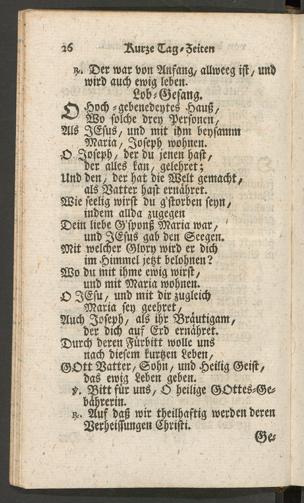 26 Kurze Tag-Zeiten
℟. Der war von Anfang, allweeg ist, und
wird auch ewig leben.
Lob-Gesang.
O Hoch-gebenedeytes Hauß,
Wo solche drey Personen,
Als JEsus, und mit ihm beysamm
Maria, Joseph wohnen.
O Joseph, der du jenen hast,
der alles kan, gelehret;
Und den, der hat die Welt gemacht,
als Vatter hast ernähret.
Wie seelig wirst du g'storben seyn,
indem allda zugegen
Dein liebe G'sponß Maria war,
und JEsus gab den Seegen.
Mit welcher Glory wird er dich
im Himmel jetzt belohnen?
Wo du mit ihme ewig wirst,
und mit Maria wohnen.
O JEsu, und mit dir zugleich
Maria sey geehret,
Auch Joseph, als ihr Bräutigam,
der dich auf Erd ernähret.
Durch deren Fürbitt wolle uns
nach diesem kurtzen Leben,
GOtt Vatter, Sohn, und Heilig Geist,
das ewig Leben geben.
℣. Bitt für uns, O heilige GOttes-Ge-
bährerin.
℟. Auf daß wir theilhaftig werden deren
Verheissungen Christi.
Ge-